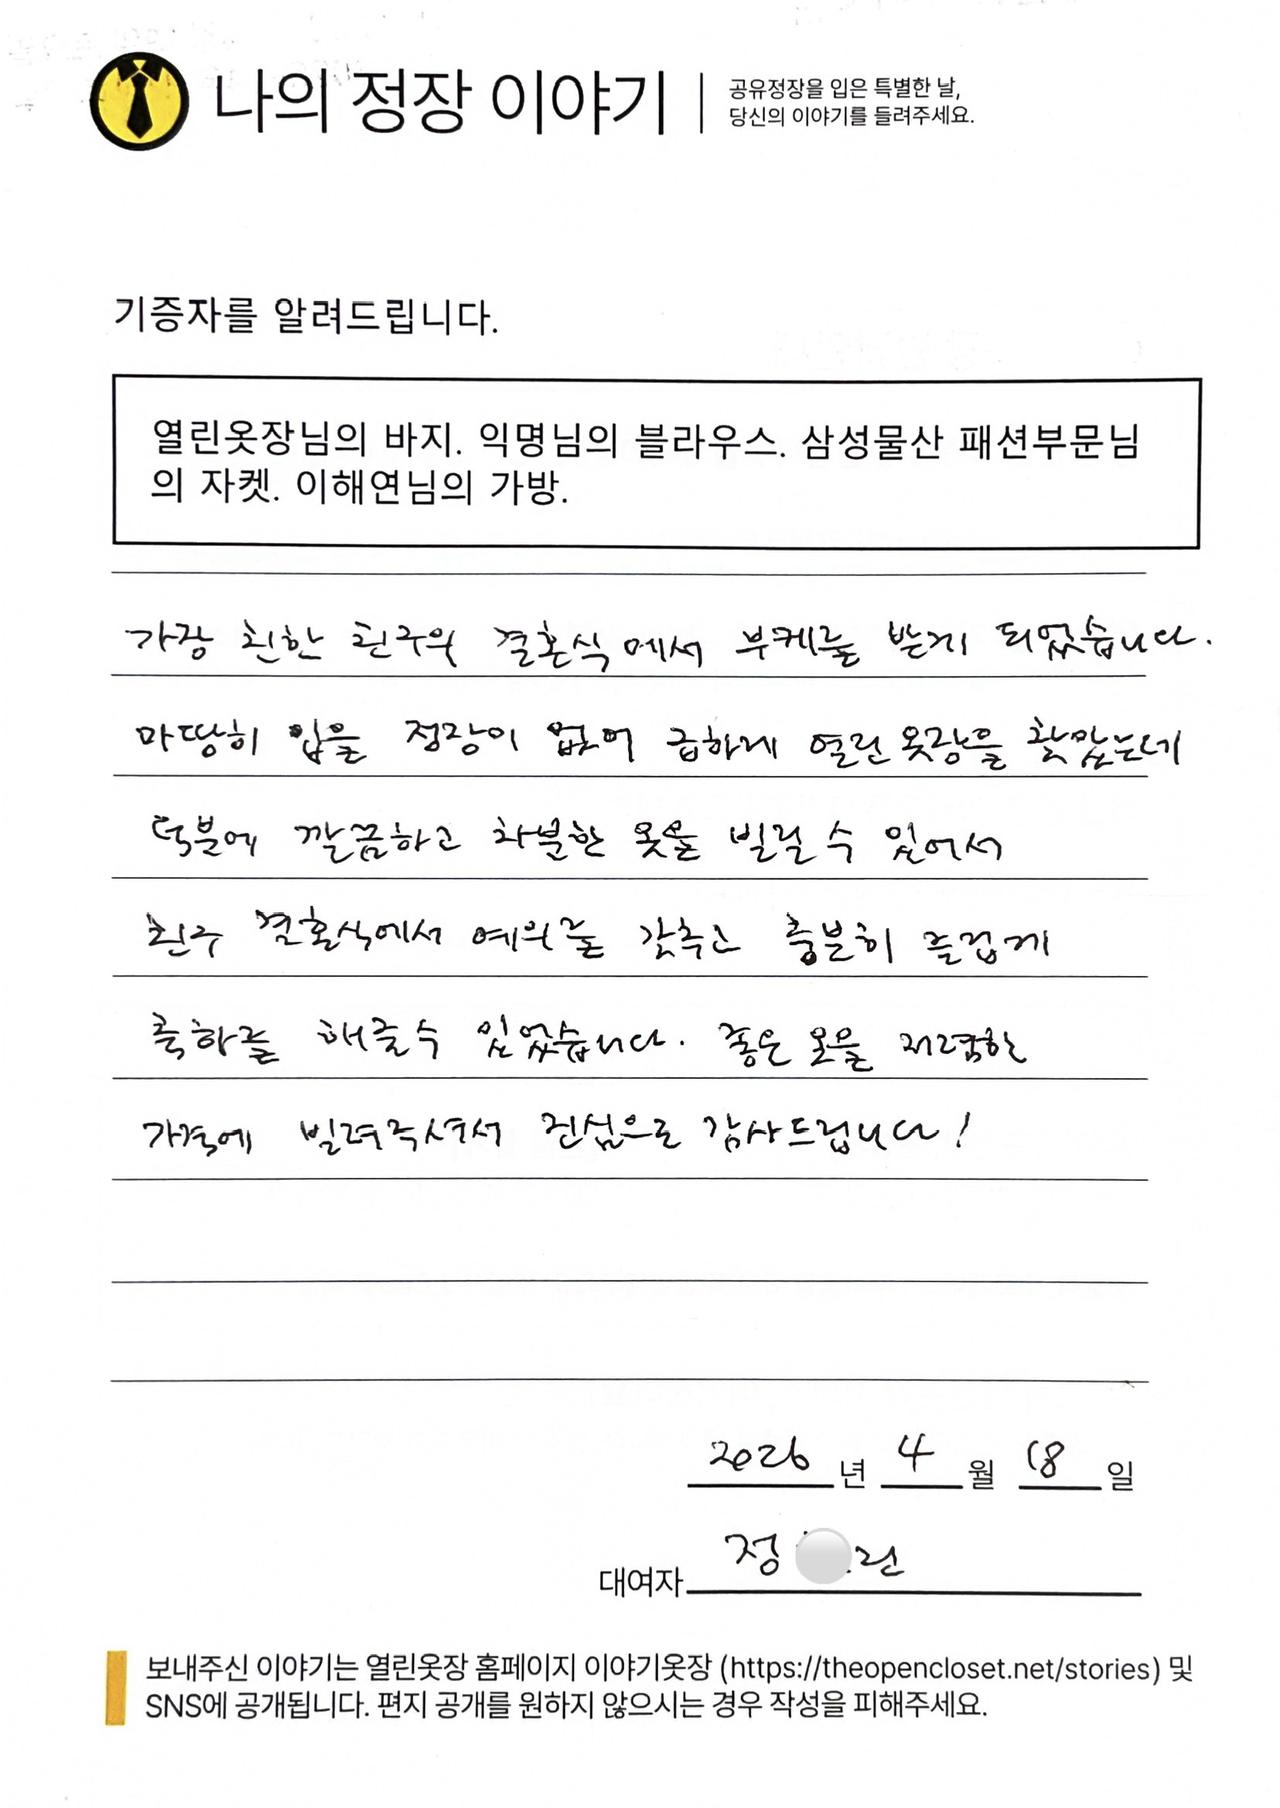 나의 정장 이야기
공유정장을 입은 특별한 날,
당신의 이야기를 들려주세요.
기증자를 알려드립니다.
열린옷장님의 바지. 익명님의 블라우스. 삼성물산 패션부문님
의 자켓. 이해연님의 가방.
가장 친한 친구의 결혼식에서 부케를 받게 되었습니다.
마땅히 입을 정장이 없어 급하게 열린옷장을 찾았는데
덕분에 깔끔하고 차분한 옷을 빌릴 수 있어서
친구 결혼식에서 예의를 갖추고 충분히 즐겁게
축하를 해줄 수 있었습니다. 좋은 옷을 저렴한
가격에 빌려주셔서 진심으로 감사드립니다!
2026 년 4 월 18 일
대여자 정 린
보내주신 이야기는 열린옷장 홈페이지 이야기옷장 (https://theopencloset.net/stories) 및
SNS에 공개됩니다. 편지 공개를 원하지 않으시는 경우 작성을 피해주세요.